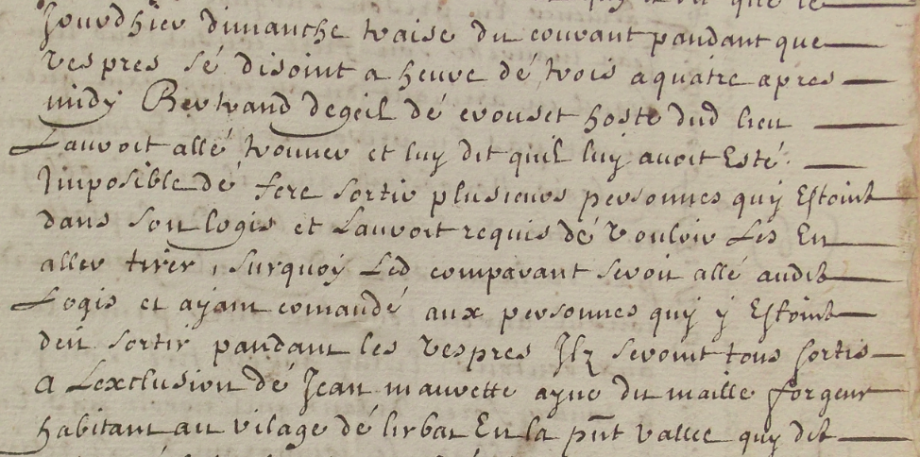 Jourdhier dimanche traise du courant pandant que
vespres sé disoint a heure dé trois a quatre apres
midy Bertrand degeil dé crouset hoste dud lieu
Lauroit allé trouver et luy dit quil luy avoit Esté
Jmposible dé fere sortir plusieurs personnes quy Estoint
dans son logis et Lauroit requis dé vouloir Les En
aller tirer, surquoy Led comparant seroit allé audit
Logis et ayant comandé aux personnes quy y Estoint
den sortir pandant les vespres Jlz seroint tous sortis
a Lexclusion dé Jean maurette ayne du maille forgeur
habitant au vilage dé lirbat En la pnt vallee quy dit